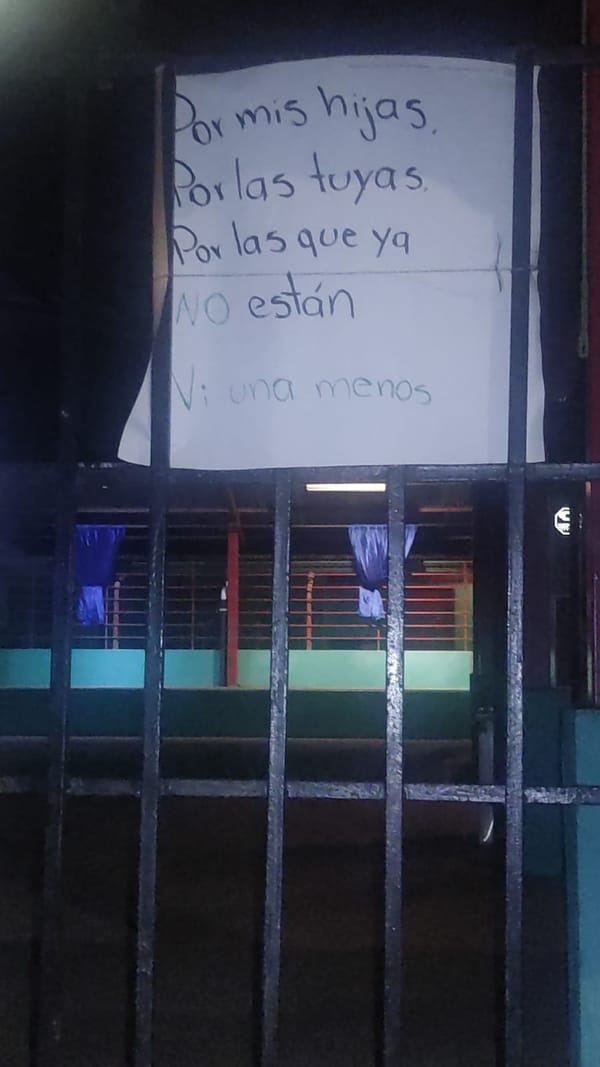 Por mis hijas.
Por las tuyas.
Por las que ya
NO están
Vi una menos